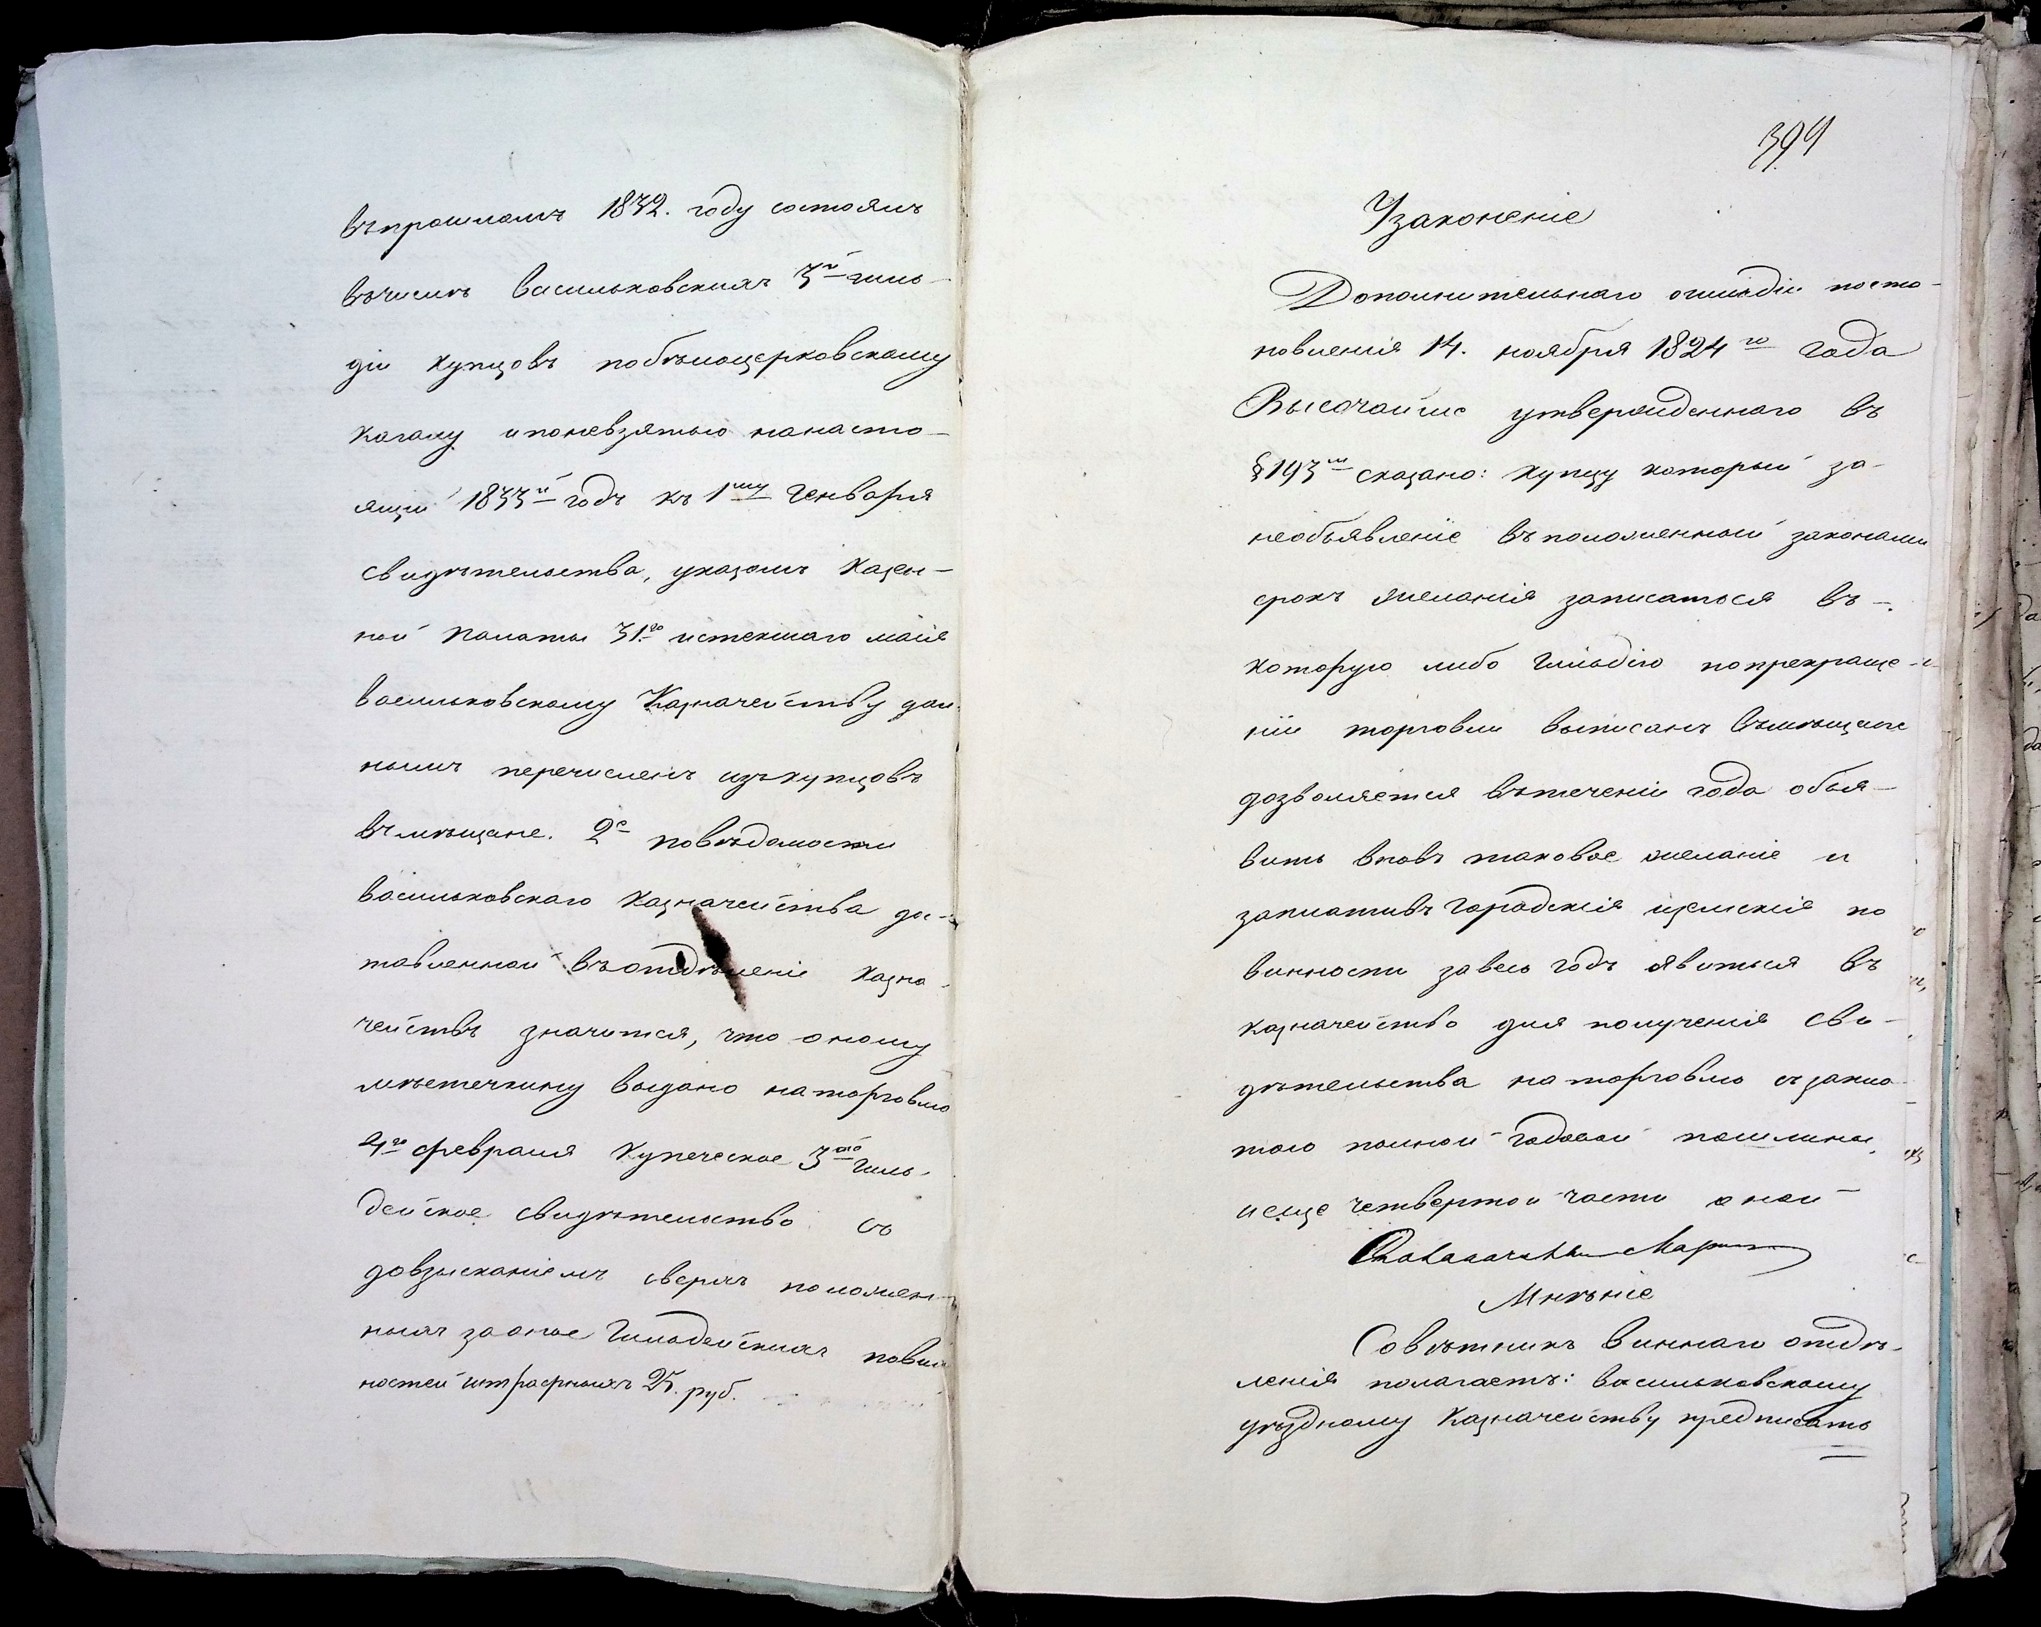 въ прошломъ 1832. году состоялъ
въ числѣ васильковскихъ 3й гиль-
діи купцовъ по бѣлоцерковскому
кагалу и по невзятью на насто-
ящій 1833й годъ къ 1му Генваря
свидѣтельства, указомъ Казен-
ной Палаты 31.го истекшаго маія
васильковскому Казначейству дан-
нымъ перечисленъ изъ купцовъ
въ мѣщане. 2е по вѣдомости
васильковскаго Казначейства дос-
тавленной въ отдѣленіе Казна-
чействъ значится, что оному
мѣстечкину выдано на торговлю
4го февраля Купеческое 3ей гиль-
дейское свидѣтельство съ
довзысканіемъ сверхъ положен-
ныхъ за оное Гильдейскихъ повин
ностей штрафныхъ 25. руб.
399
Узаконеніе
Дополнительнаго о гильдіи поста-
новленія 14. ноября 1824го года
Высочайше утвержденнаго въ
§ 193м сказано: купцу который за
необъявленіе въ положенный законами
срокъ желанія записаться въ
которую либо Гильдію по прекраще-
ніи торговли выписанъ въ мѣщане
дозволяется въ теченіи года объя-
вить вновь таковое желаніе и
заплативъ Городскія и земскія по
винности за весь годъ явиться въ
казначейство для полученія сви-
дѣтельства на торговлю съ запла-
тою полной годовой пошлины,
и еще четвертой части оной
Мнѣніе
Совѣтникъ виннаго отдѣ-
ленія полагаетъ: васильковскому
уѣздному Казначейству предписать